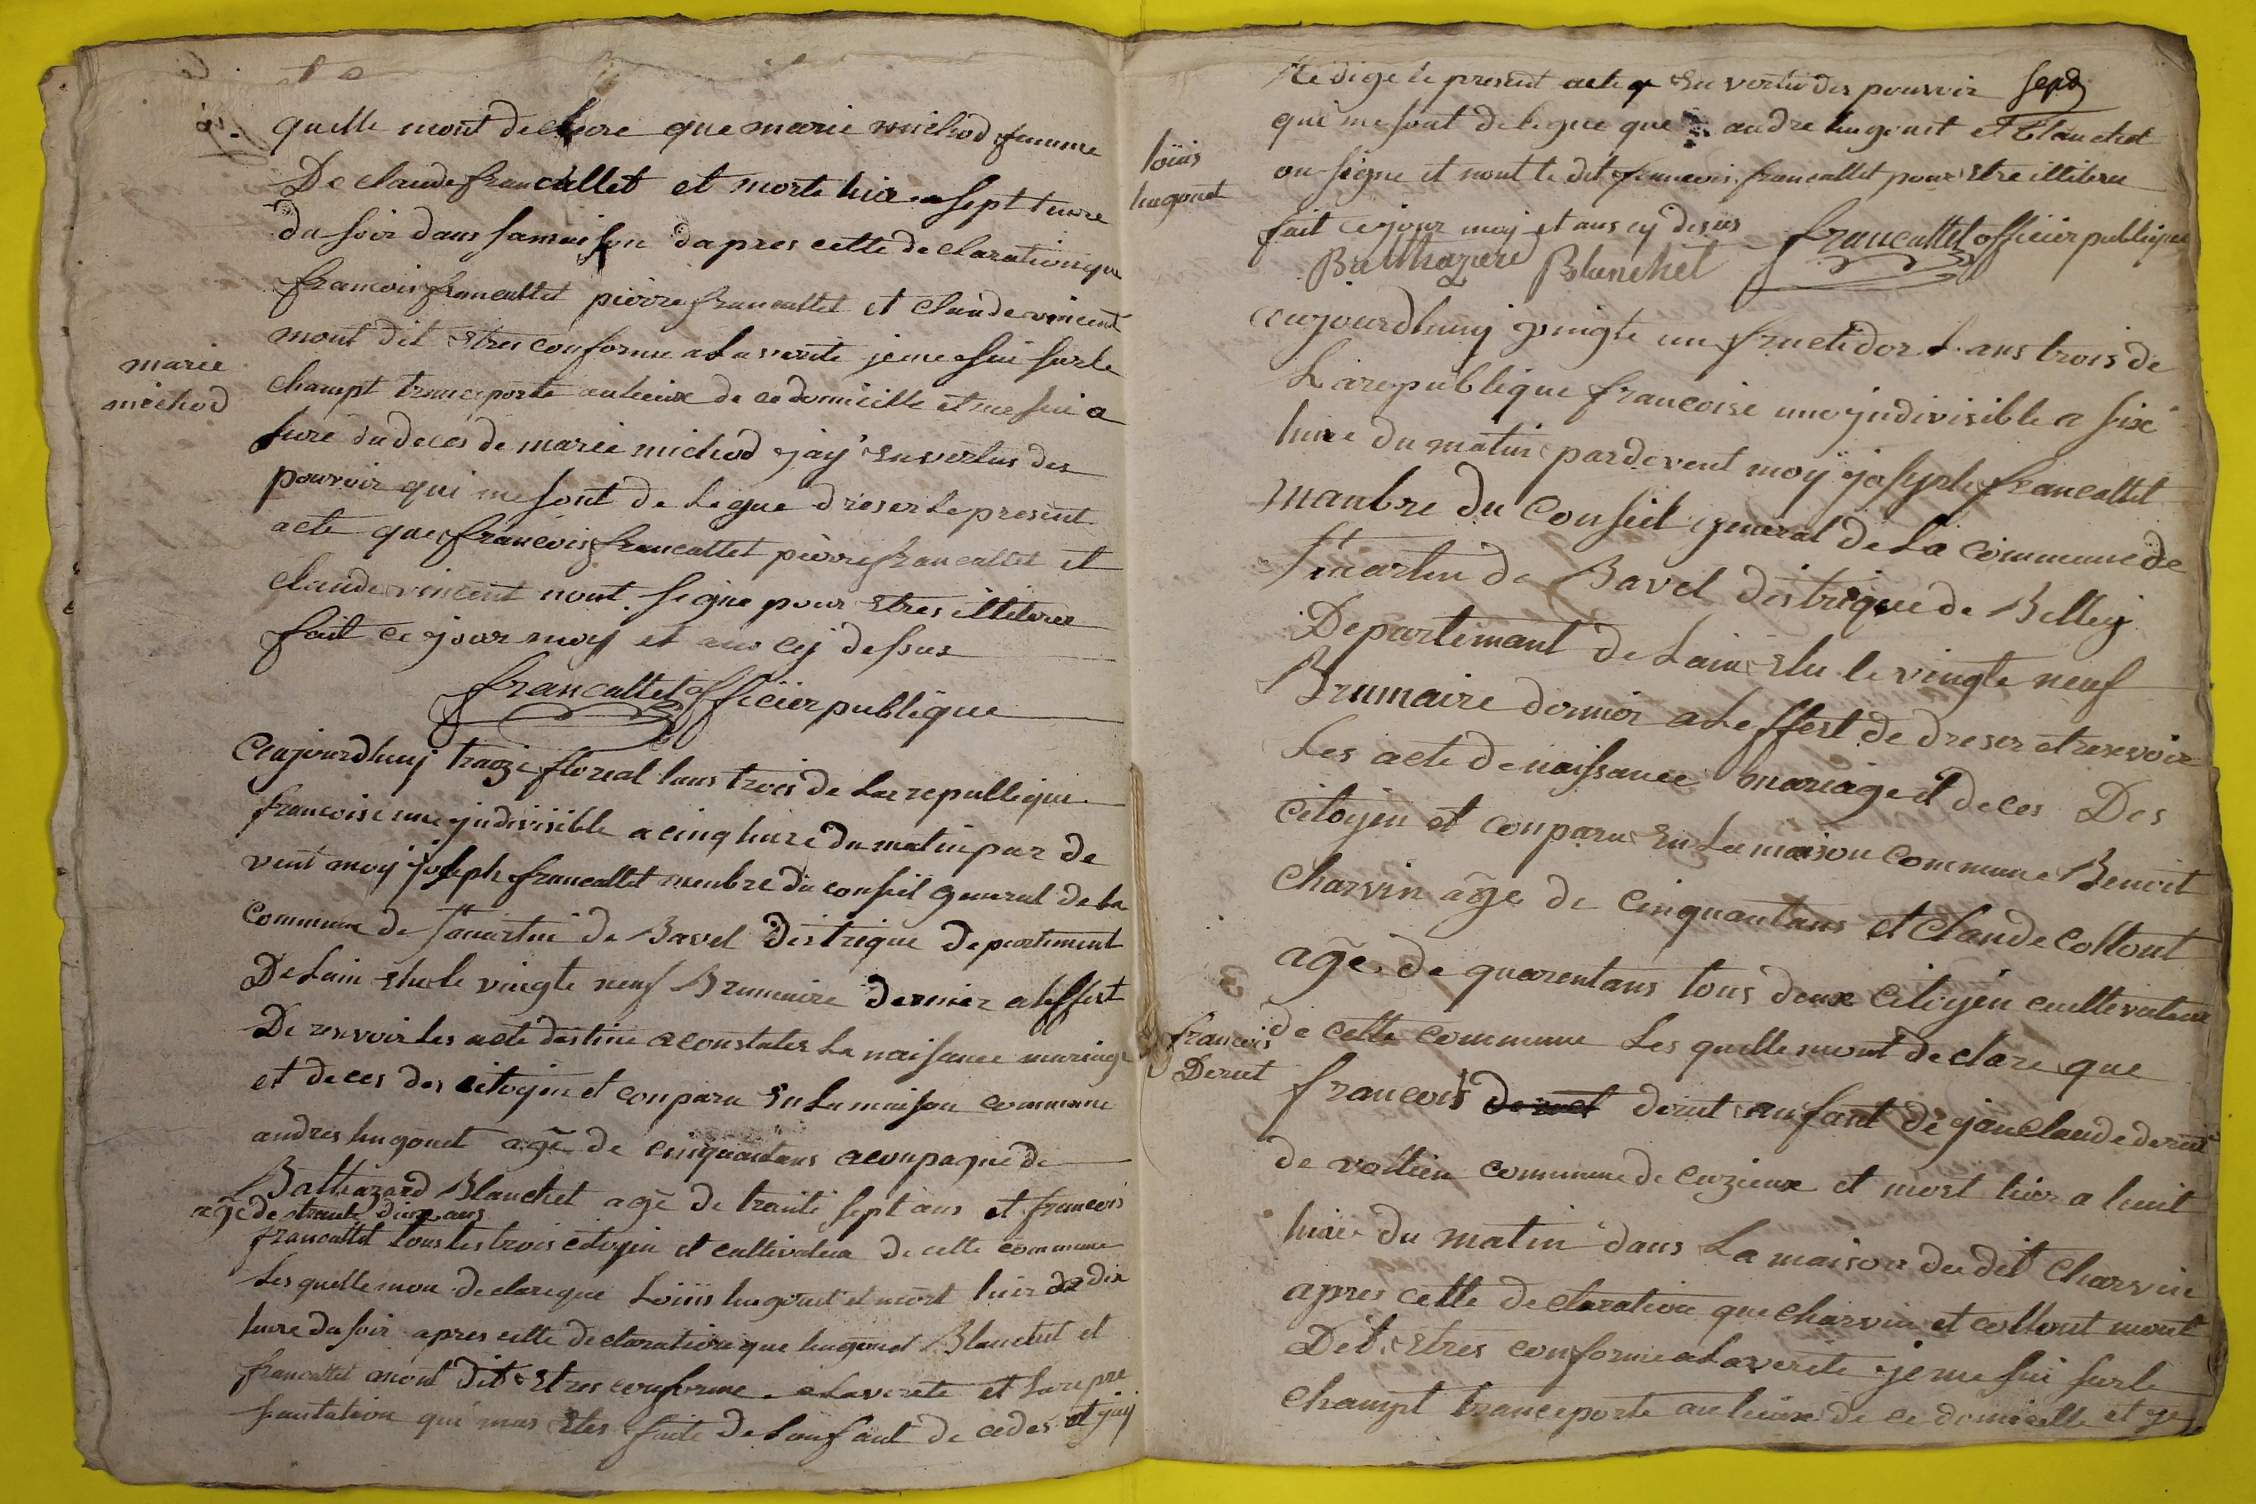 quelle mont declare que marie michod femme
De claude francallet et morte hier a sept heure
du soir dans sa maison dapres cette declaration que
francois francallet pierre francallet et claude vincent
mont dit etres conforme a la verite je me sui sur le
marie
michod
champt transporte au lieux de ce domicille et me sui a
sure du deces de marie michod jay en vertus des
pouvoir qui me sont delegue dreser le present
acte que francois francallet pierre francallet et
claude vincent nont signe pour etres illiteree
fait ce jour moy et ans cy dessus
francallet officier publique
aujourdhuy traize floreal lans trois de la republique
francoise une jndivisible a cinq heure du matin par de
vent moy joseph francallet menbre du conseil general de la
commune de st martin de Bavel distrique departement
De Lain elu le vingte neuf Brumaire dernier a leffert
De resevoir les acte destine a constater la naisance mariage
et deces des citoyin et conparu en la maison commune
andres hugonet age de cinquantans aconpagne de
Balthazard Blanchet age de trante sept ans et francois
age de trante deux ans
francallet tous les trois citoyin et cultivateur de cette commune
Les quelle mon declare que Louis hugonet et mort hier a dix
heure du soir apres cette declaration que hugonet Blanchet et
francallet mont dit etres conforme a la verite et la repre
santation qui mas etes faite de lanfant de cedes et jay
sept
Redige le present acte en vertu des pouvoir
louis
hugonet
qui me sont delegue que andre hugonet et Blanchet
on signe et nont le dit francois francallet pour etre illiteree
fait ce jour moy et ans cy desus francallet officier publique
Balthazare Blanchet
aujourdhuy vingte un fructidor Lans trois de
La republique francoise une jndivisible a sixe
heure du matin pardevent moy joseph francallet
manbre du Conseil general de La commune de
st martin de Bavel distrique de Belley
Departemant de Lain elu le vingte neuf
Brumaire dernier a Leffert de dreser et resevoir
Les acte de naissance mariage et deces Des
citoyen et conparu en La maison commune Benoit
charvin age de cinquantans et Claude collont
age de quarentans tous deux citoyin cultivateur
francois
Derut
de cette commune Les quelle mont declare que
francois derut anfant de jan claude derut
de vollien commune de cuzieux et mort hier a huit
heure du matin dans La maison du dit charvin
apres cette declaration que charvin et collont mont
Dit etres conforme a La verite je me sui sur le
champt transporte au lieux de ce domicelle et je